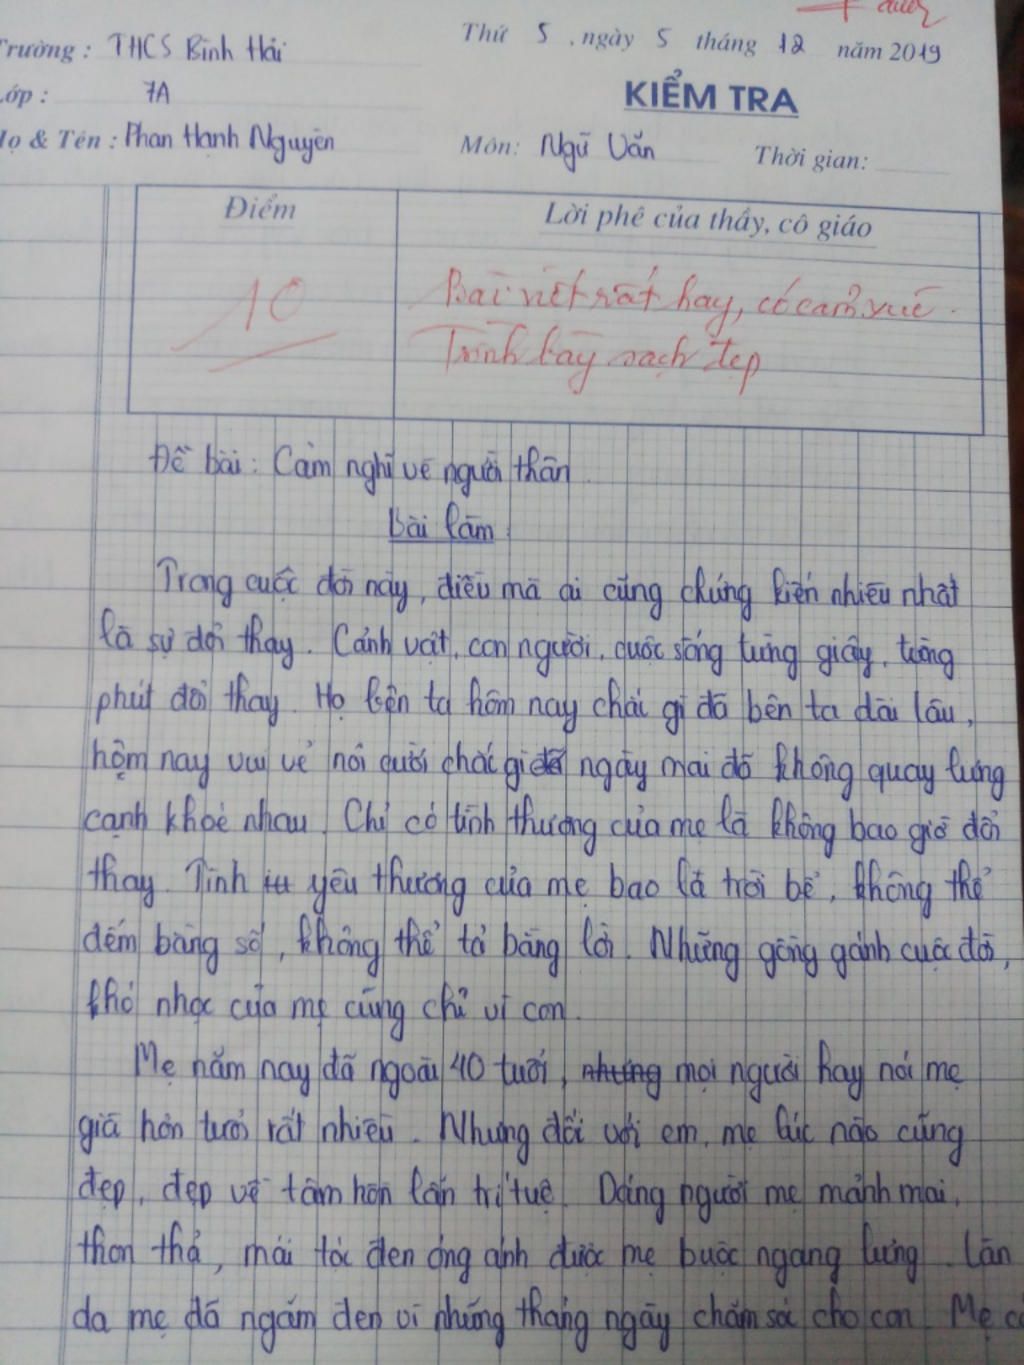 Thứ 5, ngày 5 tháng 12 năm 2019
Trường: THCS Bình Hải
Lớp: 7A
KIỂM TRA
Họ & Tên: Phan Hạnh Nguyên
Môn: Ngữ Văn Thời gian:
Điểm
Lời phê của thầy, cô giáo
10
Bài viết rất hay, có cảm xúc.
Trình bày sạch đẹp
Đề bài: Cảm nghĩ về người thân.
Bài làm
Trong cuộc đời này, điều mà ai cũng chứng kiến nhiều nhất
là sự đổi thay. Cảnh vật, con người, cuộc sống từng giây, từng
phút đổi thay. Họ bên ta hôm nay chắc gì đã bên ta dài lâu,
hôm nay vui vẻ nói cười chắc gì đã ngày mai đã không quay lưng
cạnh khoé nhau. Chỉ có tình thương của mẹ là không bao giờ đổi
thay. Tình yêu thương của mẹ bao la trời bể, không thể
đếm bằng số, không thể tả bằng lời. Những gồng gánh cuộc đời,
khó nhọc của mẹ cũng chỉ vì con.
Mẹ năm nay đã ngoài 40 tuổi, nhưng mọi người hay nói mẹ
già hơn tuổi rất nhiều. Nhưng đối với em, mẹ lúc nào cũng
đẹp, đẹp về tâm hồn lẫn trí tuệ. Dáng người mẹ mảnh mai,
thon thả, mái tóc đen óng ánh được mẹ buộc ngang lưng. Làn
da mẹ đã ngăm đen vì những tháng ngày chăm sóc cho con. Mẹ